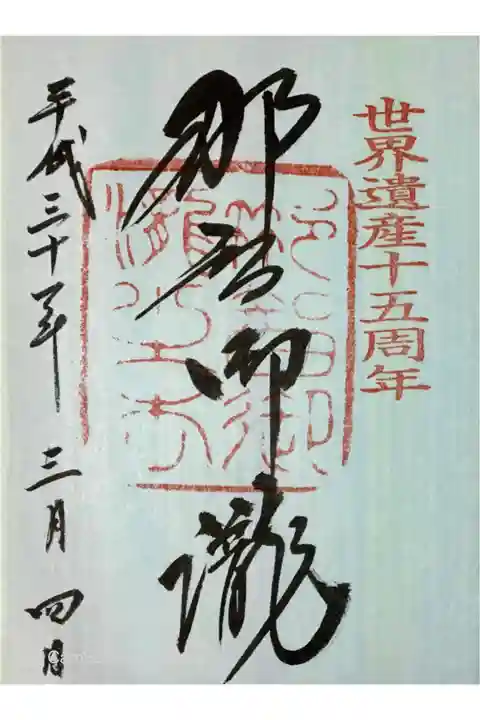 世界遺産十五周年
那智御瀧
平成三十年 三月 四日